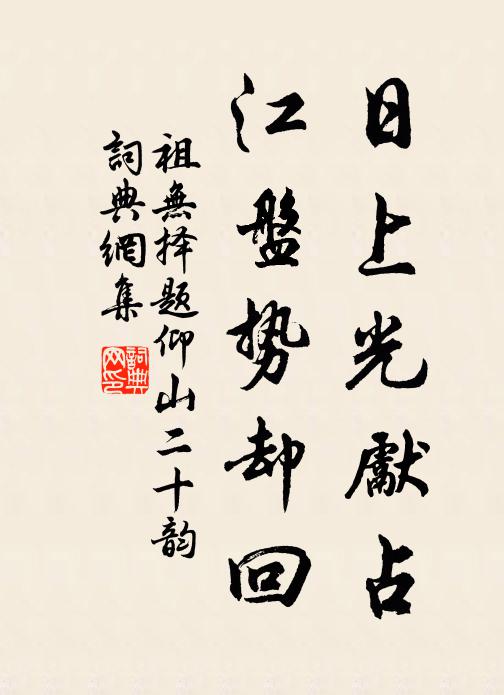 日上光獻占
江盤勢却回
祖無择题仰山二十韵
詞典網集
詞典網印